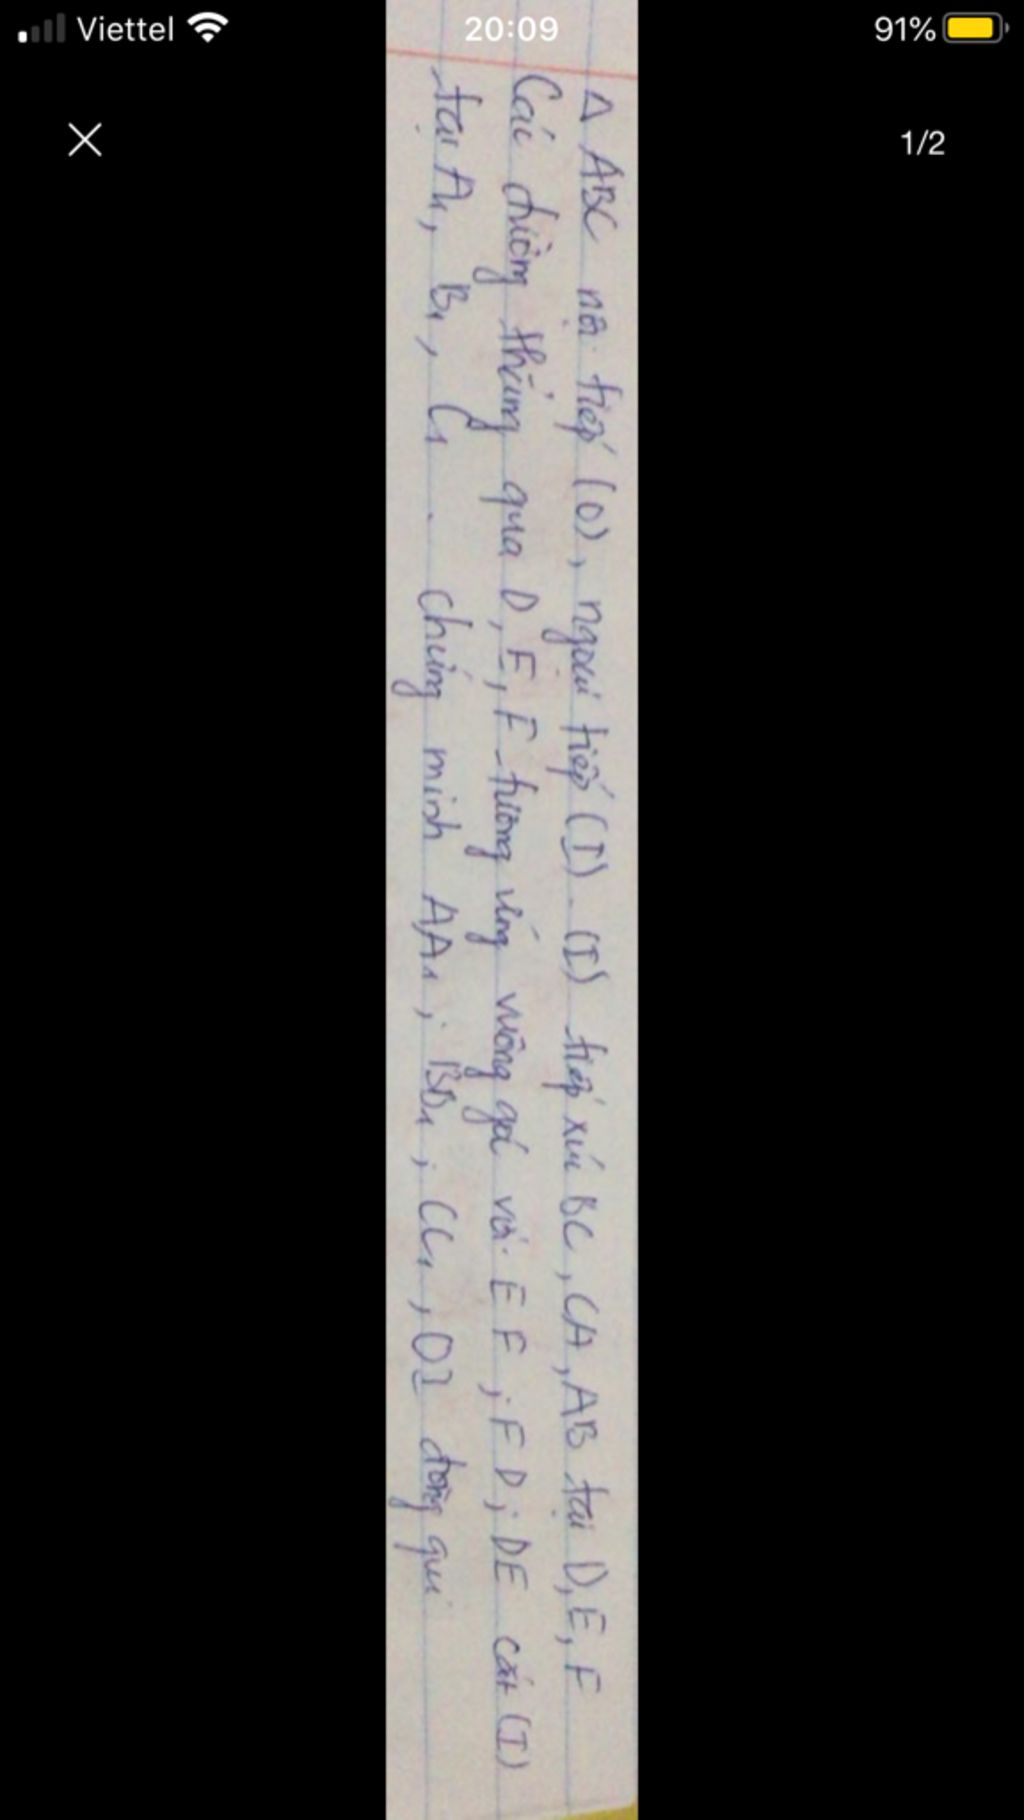 Viettel
20:09
91%
1/2
Δ ABC nội tiếp (O), ngoại tiếp (I). (I) tiếp xúc BC, CA, AB tại D, E, F
Các đường thẳng qua D, E, F tương ứng vuông góc với EF; FD; DE cắt (I)
tại A1, B1, C1. Chứng minh AA1; BB1; CC1, OI đồng qui